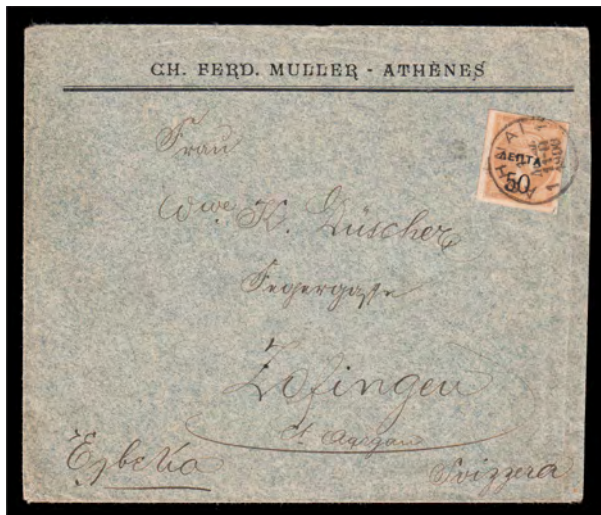 CH. FERD. MULLER - ATHÈNES
ΛΕΠΤΑ
50
1900
Frau
Wwe K. Düscher
Zofingen
Ct. Aargau
Svizzera